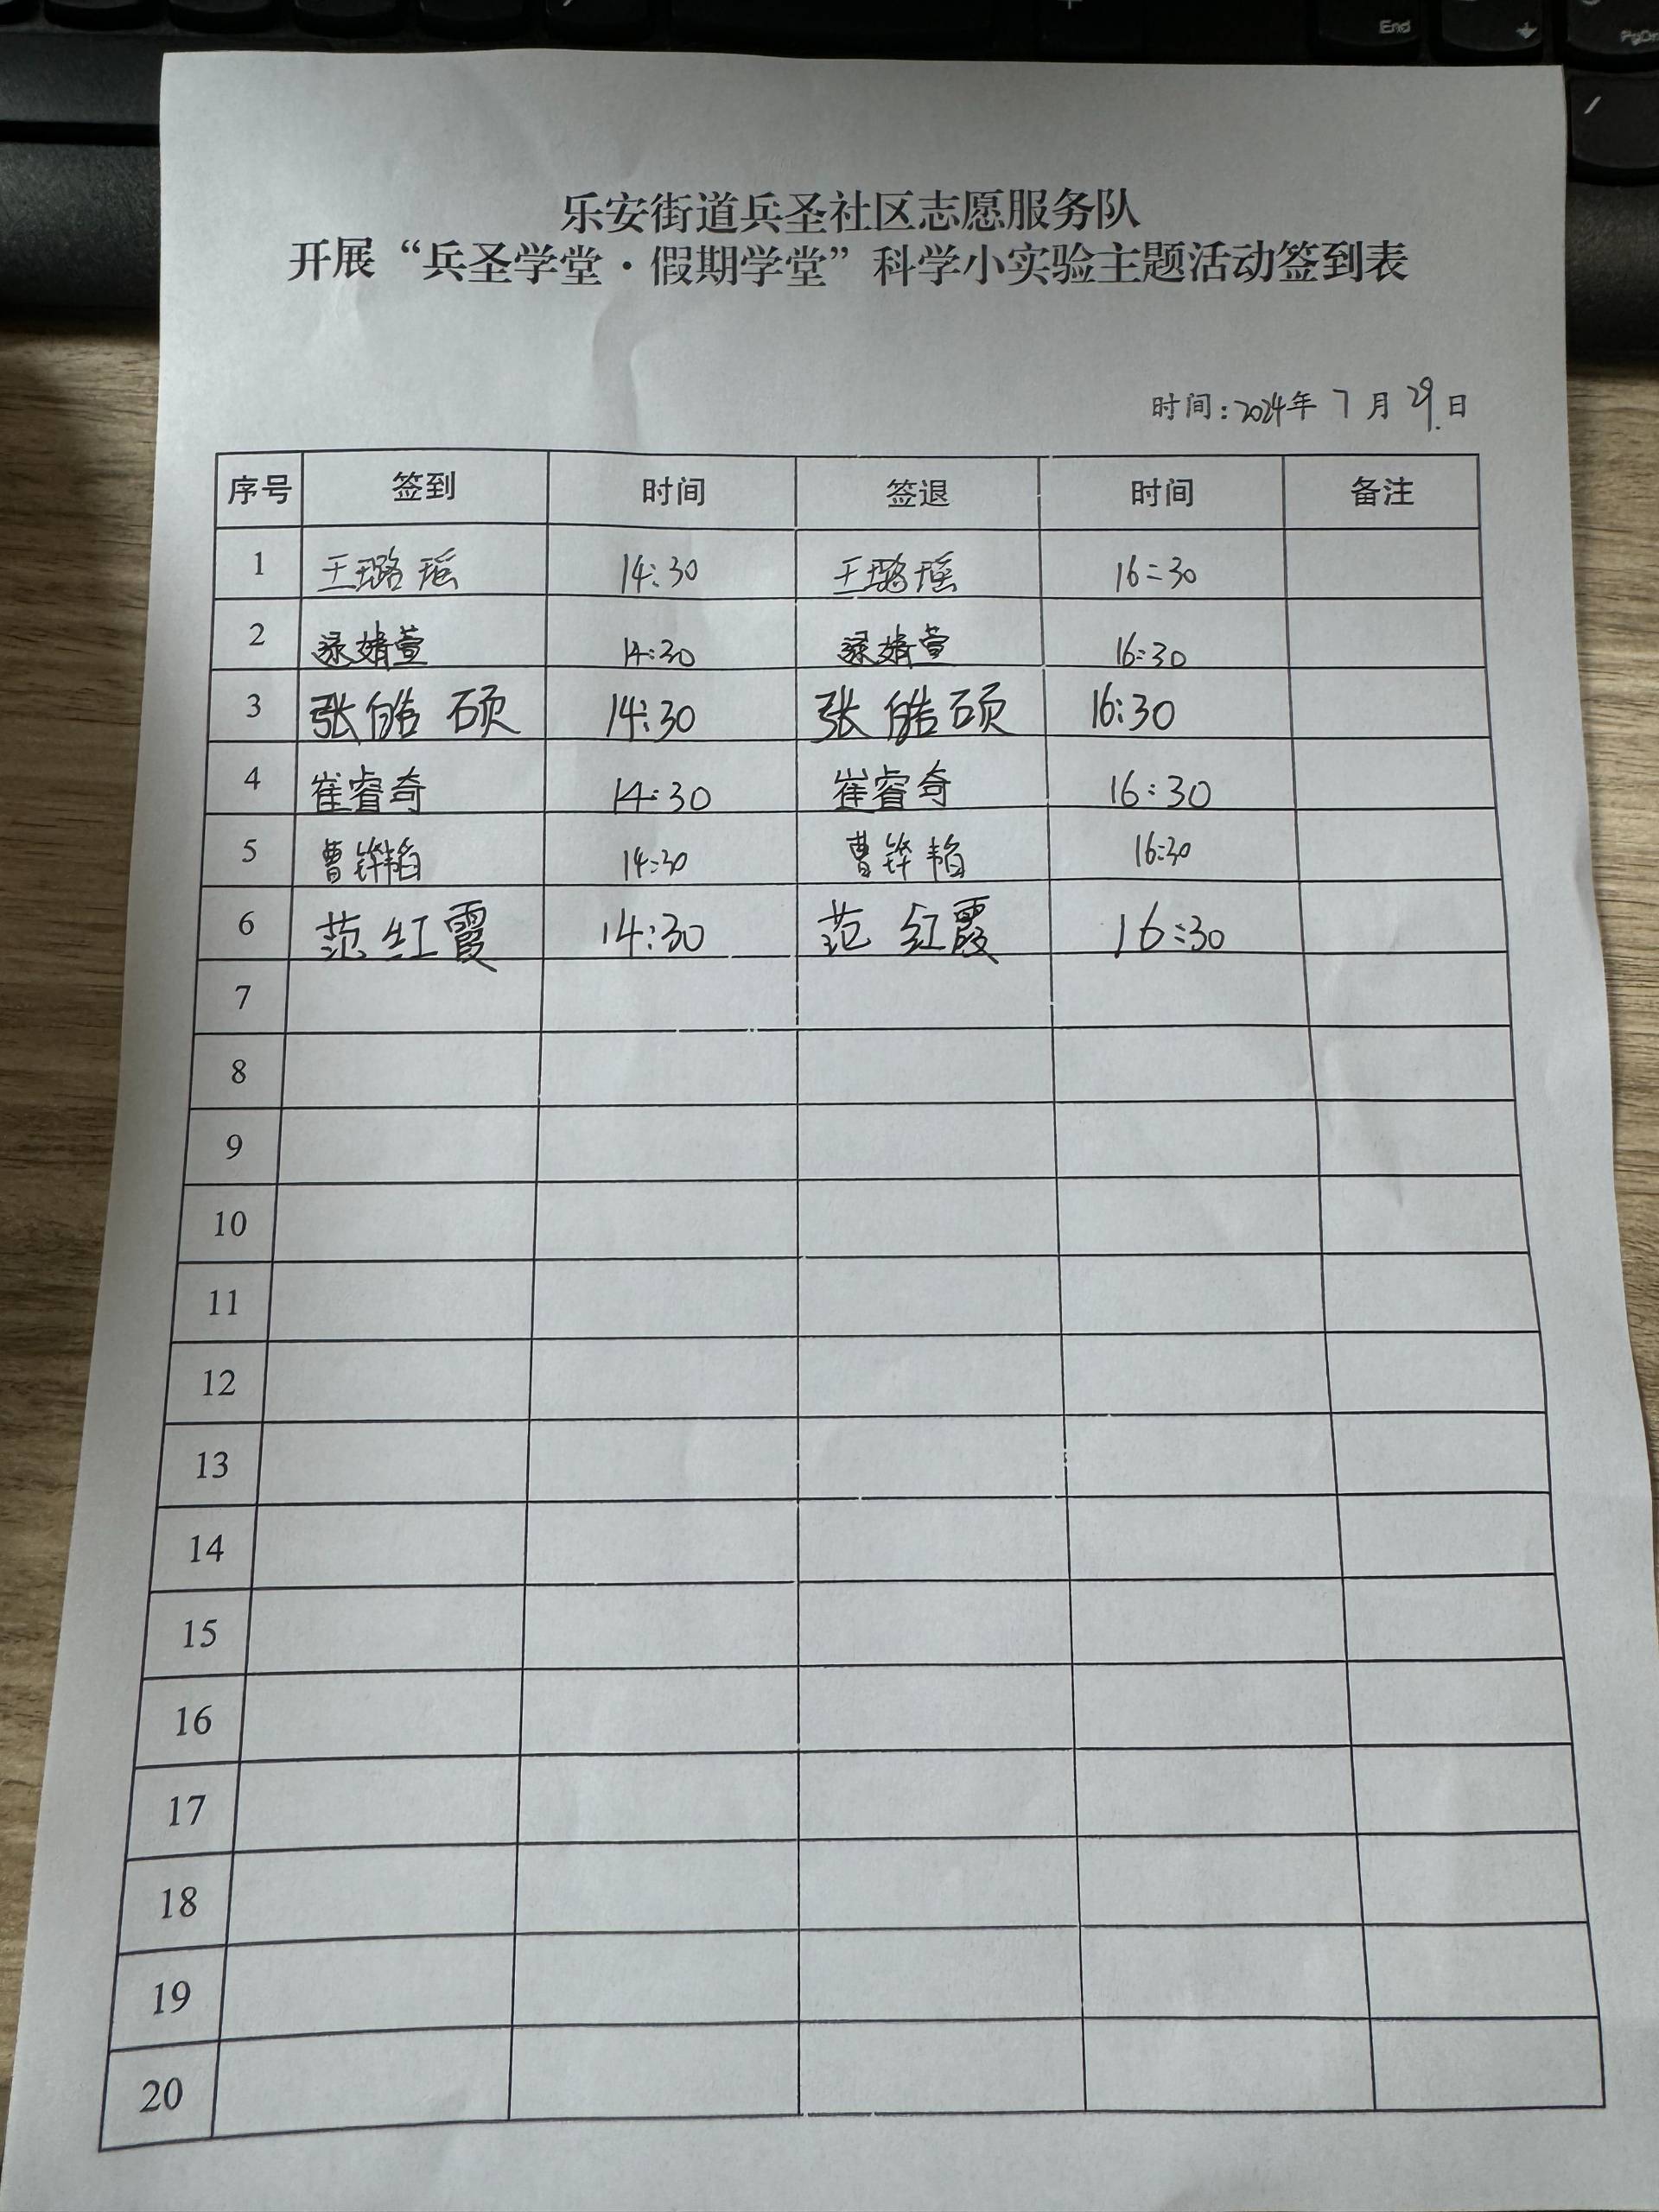 End
PgDn
乐安街道兵圣社区志愿服务队
开展“兵圣学堂·假期学堂”科学小实验主题活动签到表
时间:2024年 7 月 29.日
序号 签到 时间 签退 时间 备注
1 王璐瑶 14:30 王璐瑶 16:30
2 婧萱 14:30 婧萱 16:30
3 张皓硕 14:30 张皓硕 16:30
4 崔睿奇 14:30 崔睿奇 16:30
5 曹铧韬 14:30 曹铧韬 16:30
6 范红霞 14:30 范红霞 16:30
7
8
9
10
11
12
13
14
15
16
17
18
19
20